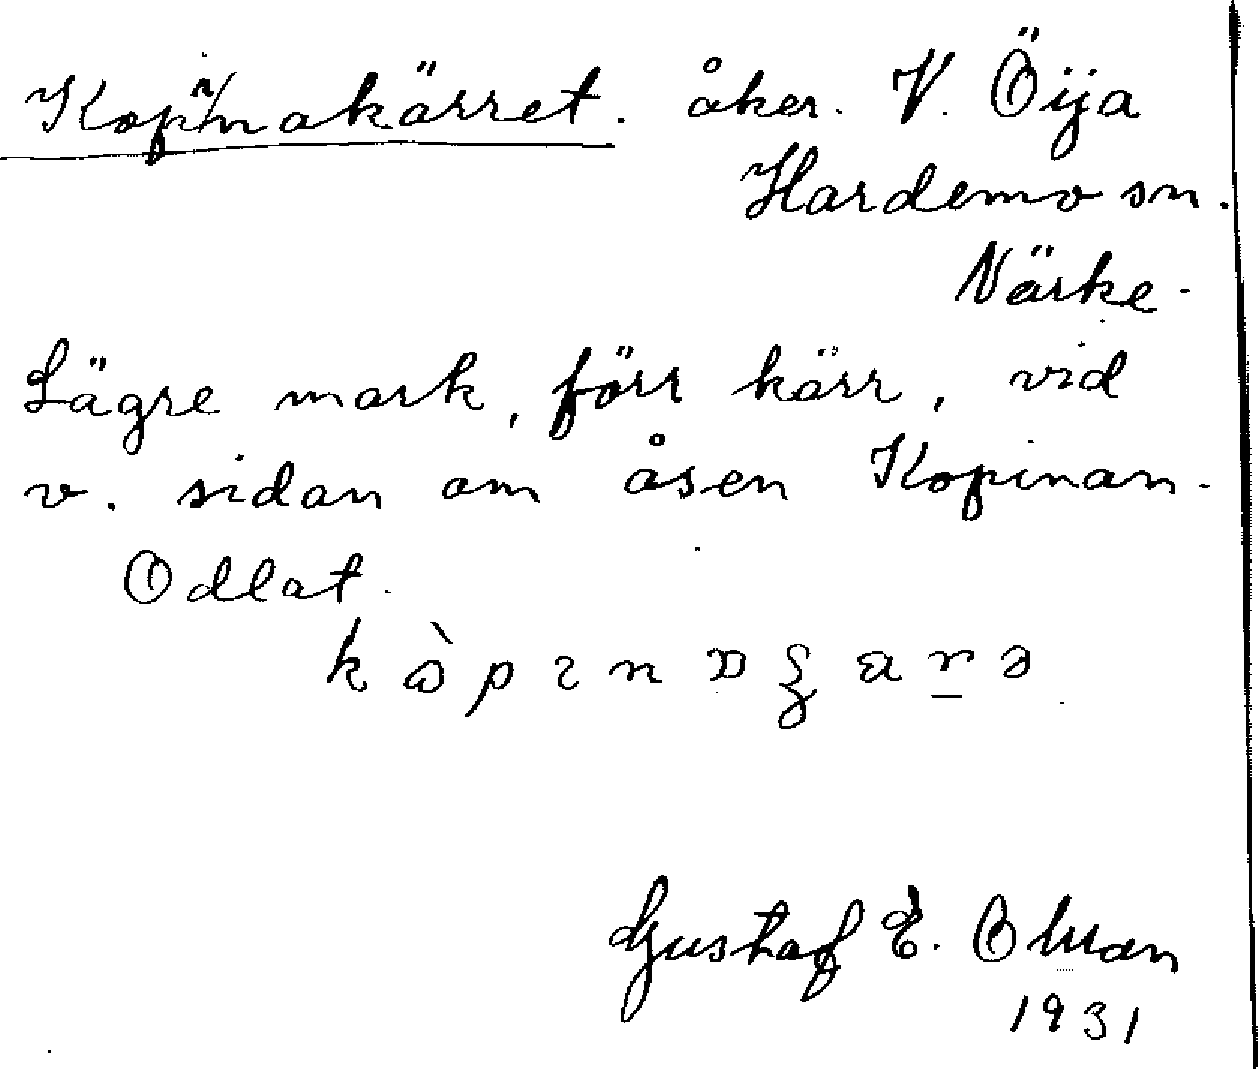 Kopinakärret. åker. V. Öija
Hardemo sn.
Närke.
Lägre mark, förr kärr, vid
v. sidan om åsen Kopinan.
Odlat.
Gustaf E. Olsson
1931